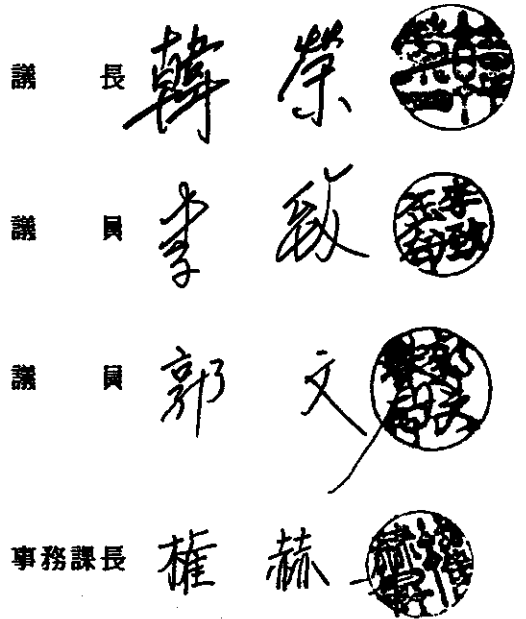 議長 韓榮
議員 李致
議員 郭文
事務課長 權赫